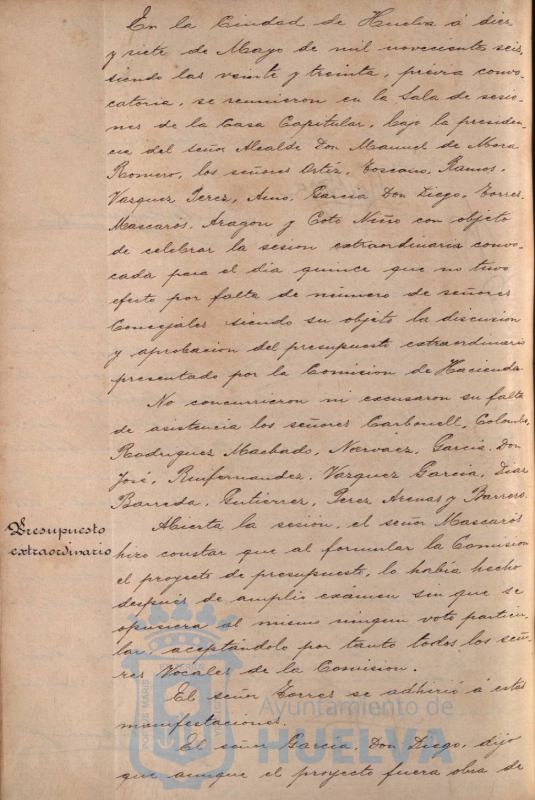 En la Ciudad de Huelva á diez
y siete de Mayo de mil novecientos seis,
siendo las veinte y treinta, prévia convo-
catoria, se reunieron en la Sala de sesio-
nes de la Casa Capitular, bajo la presiden-
cia del señor Alcalde Don Manuel de Mora
Romero, los señores Ortiz, Toscano, Ramos,
Vazquez Perez, Amo, Garcia Don Diego, Torres,
Mascarós, Aragon y Coto Niño con objeto
de celebrar la sesion extraordinaria convo-
cada para el dia quince que no tuvo
efecto por falta de número de señores
Concejales siendo su objeto la discusion
y aprobacion del presupuesto extraordinario
presentado por la Comision de Hacienda.
No concurrieron ni excusaron su falta
de asistencia los señores Carbonell, Colombo,
Rodriguez Machado, Narvaez, Garcia Don
José, Ruifernandez, Vazquez Garcia, Diaz
Barreda, Gutierrez, Perez Arenas y Barrero.
Presupuesto
extraordinario
Abierta la sesion, el señor Mascarós
hizo constar que al formular la Comision
el proyecto de presupuesto, lo habia hecho
después de amplio exámen sin que se
opusiera al mismo ningun voto particu-
lar, aceptándolo por tanto todos los seño-
res Vocales de la Comision.
El señor Torres se adhirió á estas
manifestaciones.
El señor Garcia, Don Diego, dijo
que aunque el proyecto fuera obra de
Ayuntamiento de
HUELVA
PORTUS MARIS